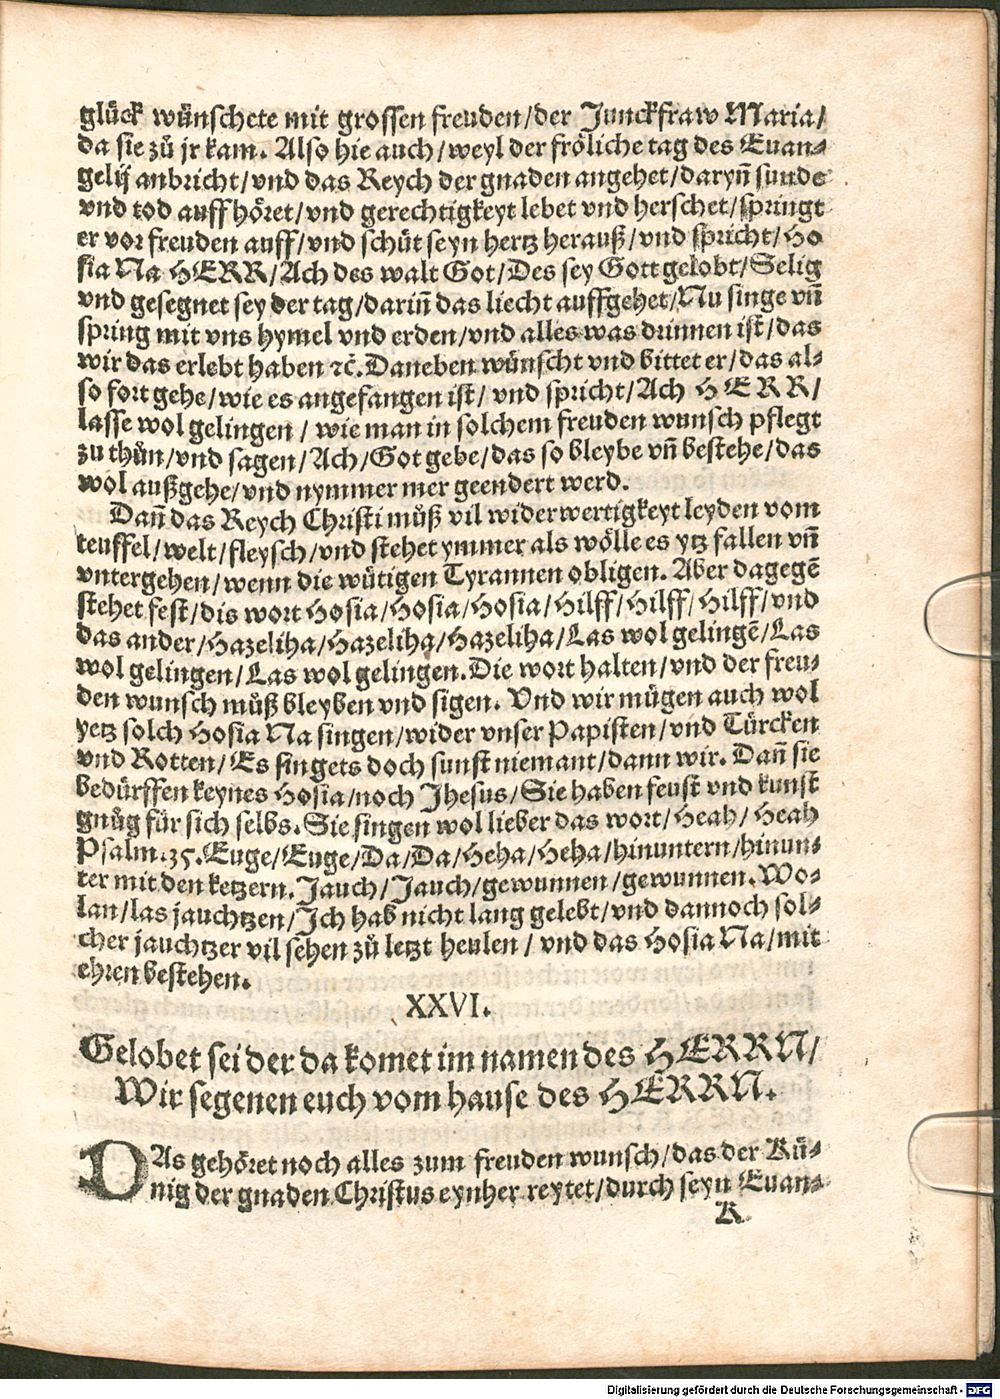 glück wünschete mit grossen freuden/der Junckfraw Maria/
da sie zů jr kam. Also hie auch/weyl der fröliche tag des Euan-
gelij anbricht/vnd das Reych der gnaden angehet/daryñ sunde
vnd tod auffhöret/vnd gerechtigkeyt lebet vnd herschet/springt
er vor freuden auff/vnd schüt seyn hertz herauß/vnd spricht/Ho
sia Na HERR/Ach des walt Got/Des sey Gott gelobt/Selig
vnd gesegnet sey der tag/dariñ das liecht auffgehet/Nu singe vñ
spring mit vns hymel vnd erden/vnd alles was drinnen ist/das
wir das erlebt haben ꝛc̃. Daneben wünscht vnd bittet er/das al-
so fort gehe/wie es angefangen ist/vnd spricht/Ach HERR/
lasse wol gelingen/wie man in solchem freuden wunsch pflegt
zu thůn/vnd sagen/Ach/Got gebe/das so bleybe vñ bestehe/das
wol außgehe/vnd nymmer mer geendert werd.
Dañ das Reych Christi můß vil widerwertigkeyt leyden vom
teuffel/welt/fleysch/vnd stehet ymmer als wölle es ytz fallen vñ
vntergehen/wenn die wütigen Tyrannen obligen. Aber dagegẽ
stehet fest/dis wort Hosia/Hosia/Hosia/Hilff/Hilff/Hilff/vnd
das ander/Hazeliha/Hazeliha/Hazeliha/Las wol gelingẽ/Las
wol gelingen/Las wol gelingen. Die wort halten/vnd der freu-
den wunsch můß bleyben vnd sigen. Vnd wir mügen auch wol
yetz solch Hosia Na singen/wider vnser Papisten/vnd Türcken
vnd Rotten/Es singets doch sunst niemant/dann wir. Dañ sie
bedürffen keynes Hosia/noch Jhesus/Sie haben feust vnd kunst
gnůg für sich selbs. Sie singen wol lieber das wort/Heah/Heah
Psalm.35. Euge/Euge/Da/Da/Heha/Heha/hinuntern/hinun-
ter mit den ketzern. Jauch/Jauch/gewunnen/gewunnen. Wo-
lan/las jauchtzen/Ich hab nicht lang gelebt/vnd dannoch sol-
cher jauchtzer vil sehen zů letzt heulen/vnd das Hosia Na/mit
ehren bestehen.
XXVI.
Gelobet sei der da komet im namen des HERRN/
Wir segenen euch vom hause des HERRN.
DAs gehöret noch alles zum freuden wunsch/das der Kü-
nig der gnaden Christus eynher reytet/durch seyn Euan-
K
Digitalisierung gefördert durch die Deutsche Forschungsgemeinschaft - DFG